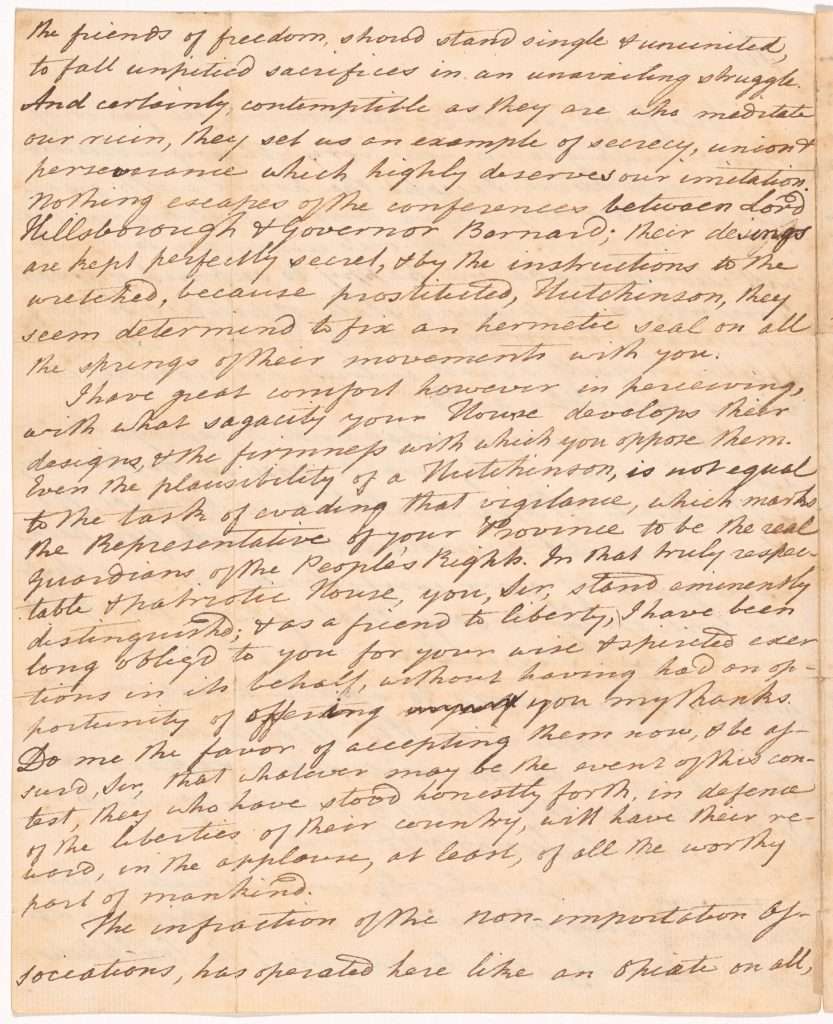 the friends of freedom, shoud stand single & ununited,
to fall unpitied sacrifices in an unavailing struggle.
And certainly, contemptible as they are who meditate
our ruin, they set us an example of secrecy, union &
perseverance which highly deserves our imitation.
Nothing escapes of the conferences between Lord
Hillsborough & Governor Barnard; their desings
are kept perfectly secret, & by the instructions to the
wretched, because prostituted, Hutchinson, they
seem determind to fix an hermetic seal on all
the springs of their movements with you.
I have great comfort however in perceiving,
with what sagacity your House develops their
designs, & the firmness with which you oppose them.
Even the plausibility of a Hutchinson, is not equal
to the task of evading that vigilance, which marks
the Representative of your Province to be the real
guardians of the People's Rights. In that truly respec-
table & patriotic House, you, Sir, stand eminently
distinguishd; & as a friend to liberty, I have been
long obligd to you for your wise & spirited exer
tions in its behalf, without having had an op-
portunity of offering you my thanks.
Do me the favor of accepting them now, & be as-
surd, Sir, that whatever may be the event of this con-
test, they who have stood honestly forth, in defence
of the liberties of their country, will have their re-
ward, in the applause, at least, of all the worthy
part of mankind.
The infraction of the non-importation As-
sociations, has operated here like an Opiate on all,